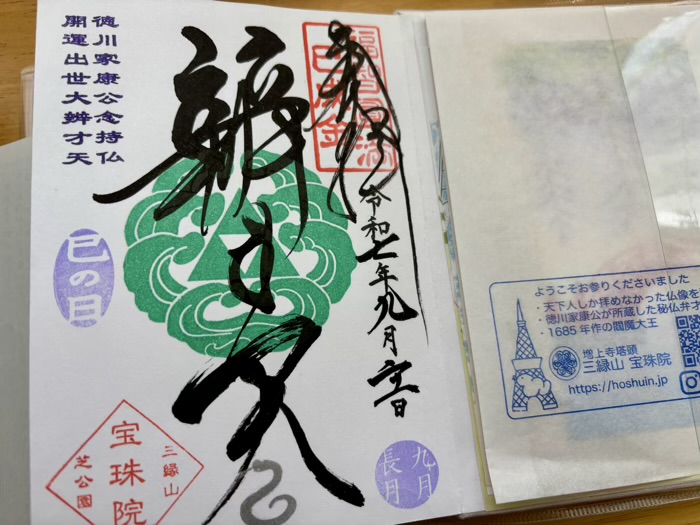 奉拝
令和七年九月
日
辨才天
徳川家康公念持仏
開運出世大辨才天
巳の日
三縁山
宝珠院
芝公園
九月
長月
ようこそお参りくださいました
・天下人しか拝めなかった仏像を
・徳川家康公が所蔵した秘仏弁才
・1685年作の閻魔大王
増上寺塔頭
三縁山 宝珠院
https://hoshuin.jp